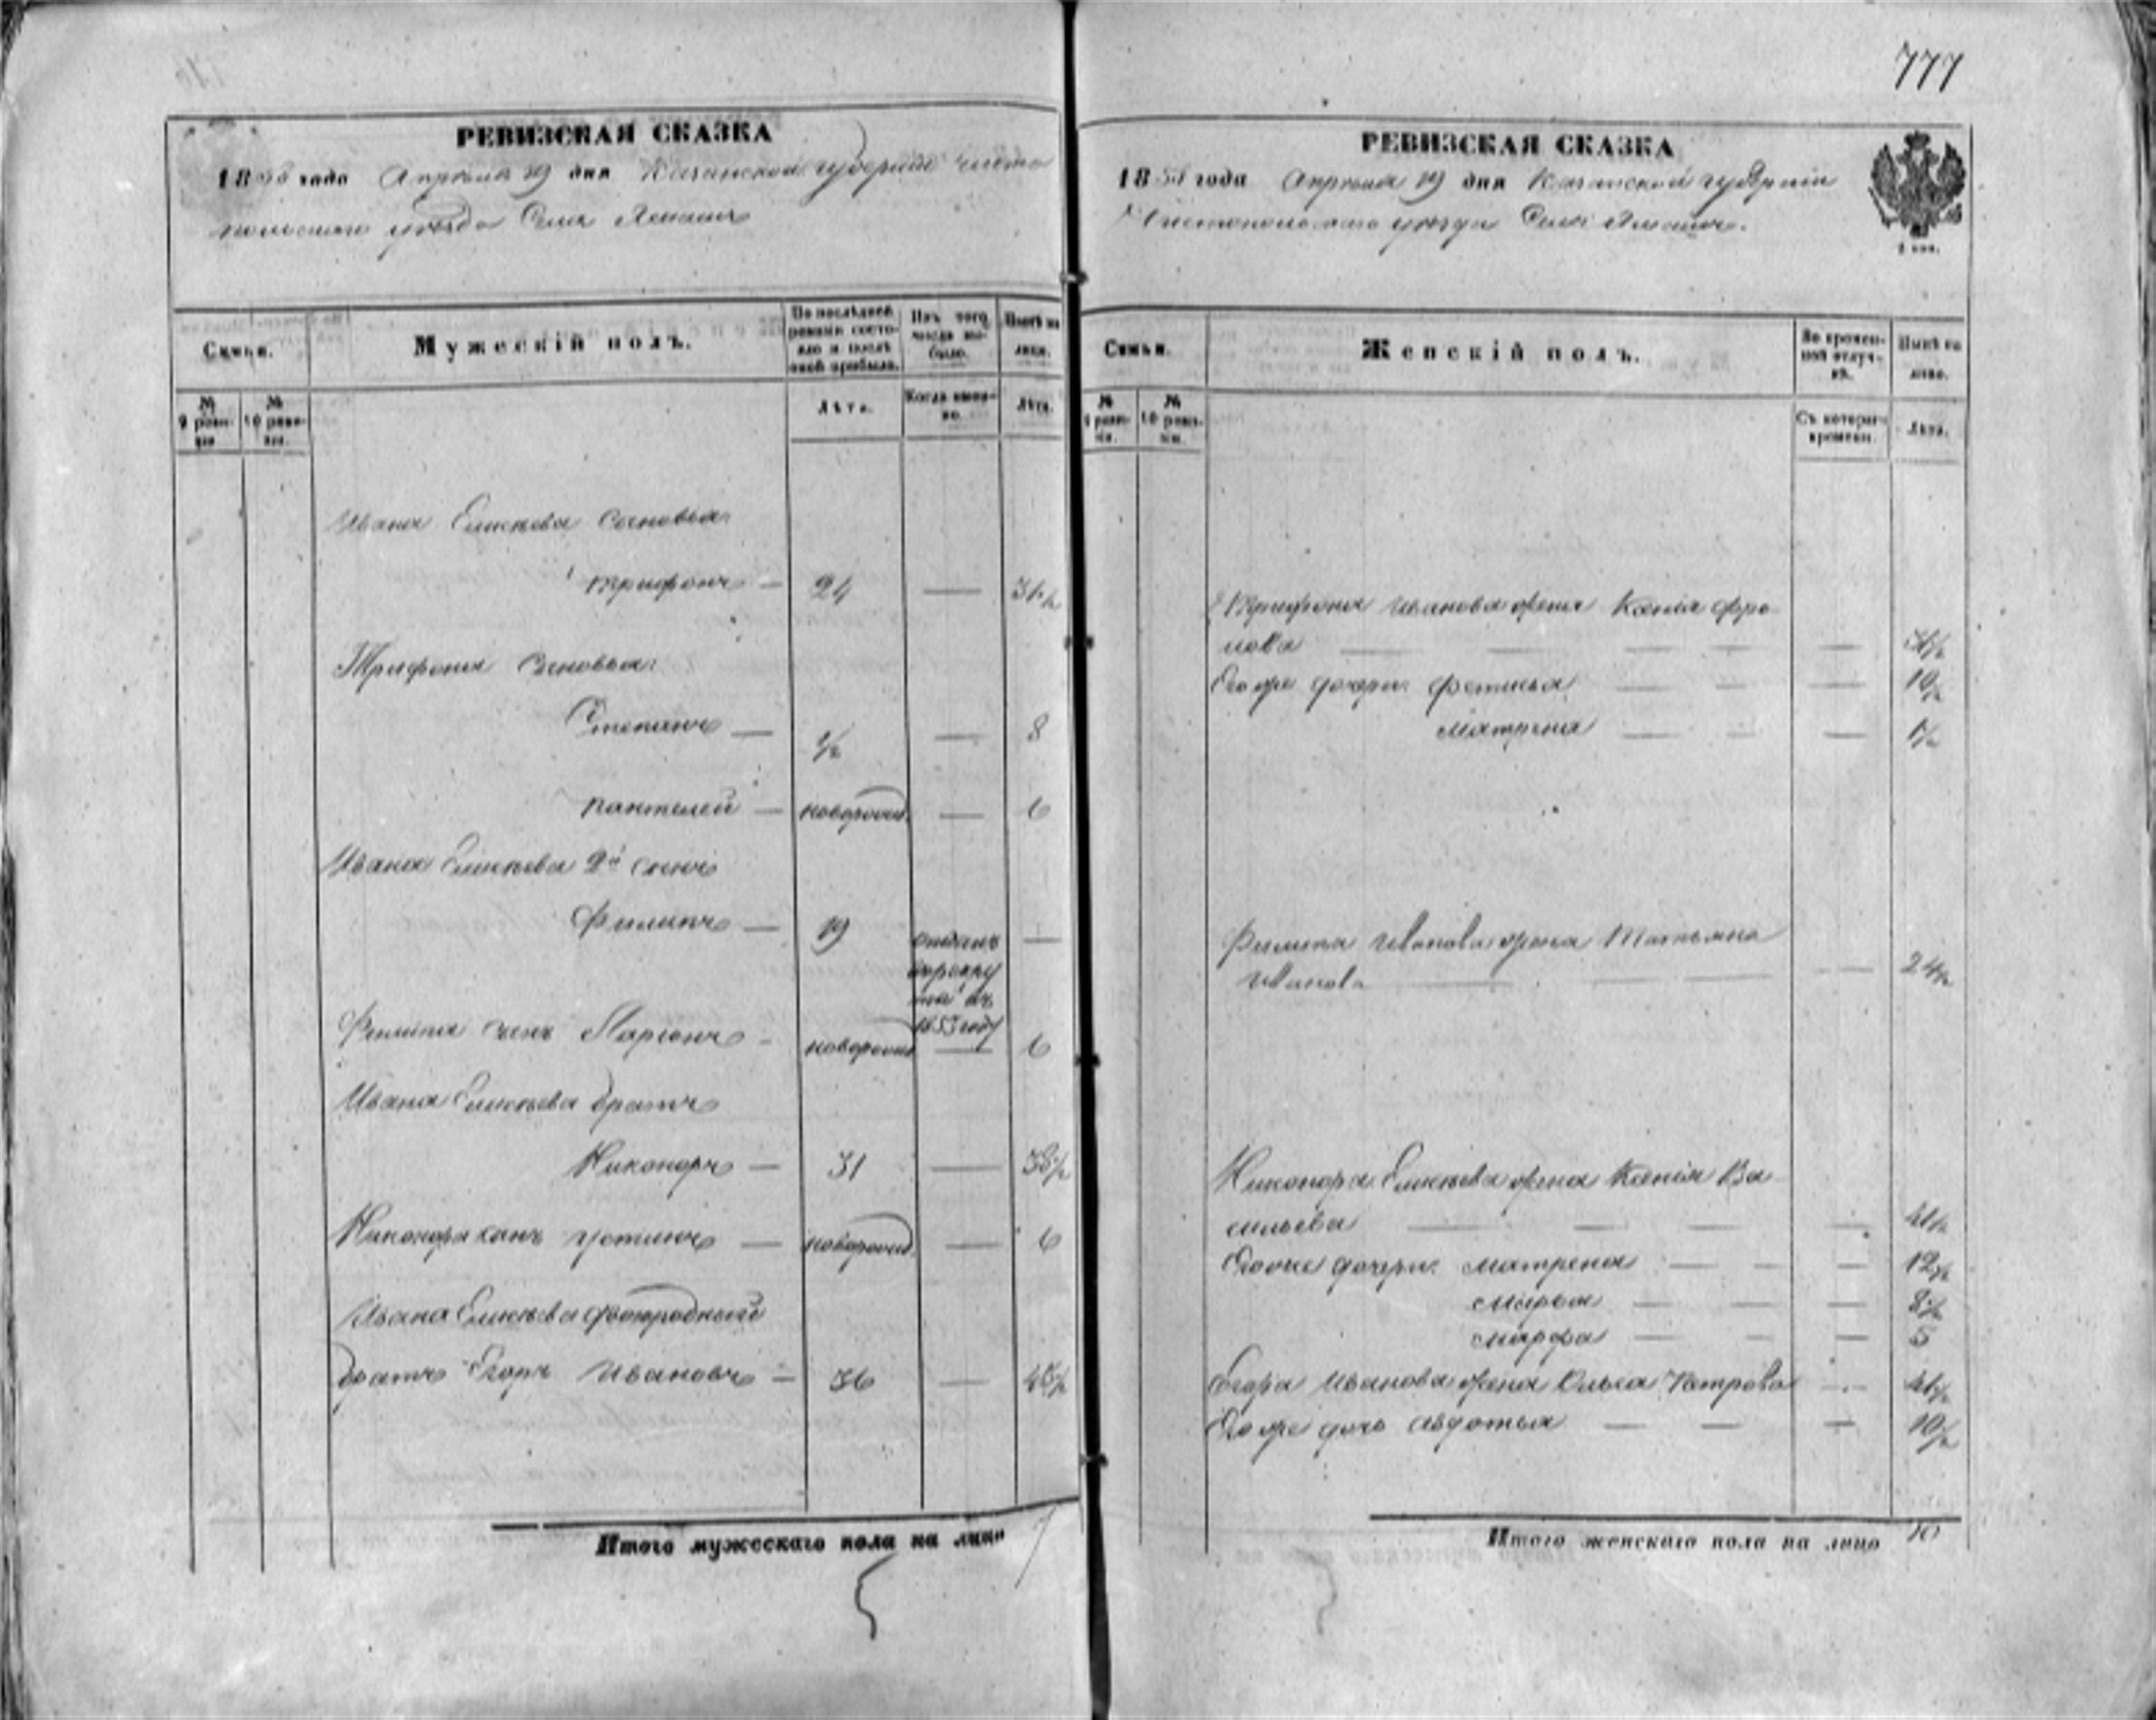 777
РЕВИЗСКАЯ СКАЗКА
1858 года Апреля 19 дня Казанской губернии Чисто
польскаго уезда Села
Семьи.
Мужескій полъ.
По послѣдней ревизіи состояло и послѣ оной прибыло.
Изъ того числа выбыло.
Нынѣ на лицо.
№ 9 ревизіи
№ 10 ревизіи.
Лѣта.
Когда именно.
Лѣта.
Ивана Елисѣева Сыновья:
1 Трифонъ — 24 — 31½
Трифона Сыновья:
Степанъ — ½ — 8
Пантелей — новорожд. — 6
Ивана Елисѣева 2й сынъ
Филипъ — 19 отданъ —
въ рекру
ты въ
1853 году
Филипа сынъ Ларіонъ - новорожд — 6
Ивана Елисѣева братъ
Никоноръ — 31 — 38½
Никонора сынъ Устинъ — новорожд. — 6
Ивана Елисѣева двоюродный
братъ Егоръ Ивановъ — 36 —
Итого мужескаго пола на лицо 7
РЕВИЗСКАЯ СКАЗКА
1858 года Апреля 19 дня Казанской губерніи
Чистопольскаго уезда Села
Семьи.
Женскій полъ.
Во временной отлучкѣ.
Нынѣ на лицо.
№ 9 ревизіи.
№ 10 ревизіи.
Съ котораго времени.
Лѣта.
Трифона Иванова жена Ксенія Фро
лова — — — — —
Его же дочери: Фетинья — — — 10½
Матрена — — — 1½
Филипа Иванова жена Татьяна
Иванова — — — 24½
Никонора Елисѣева жена Ксенія Ва
сильева — — — — 41½
Его же дочери: Матрена — — — 12½
Марья — — — 8½
Марфа — — — 5
Егора Иванова жена Ольга Петрова —
Его же дочь Авдотья — — — 10½
Итого женскаго пола на лицо 10